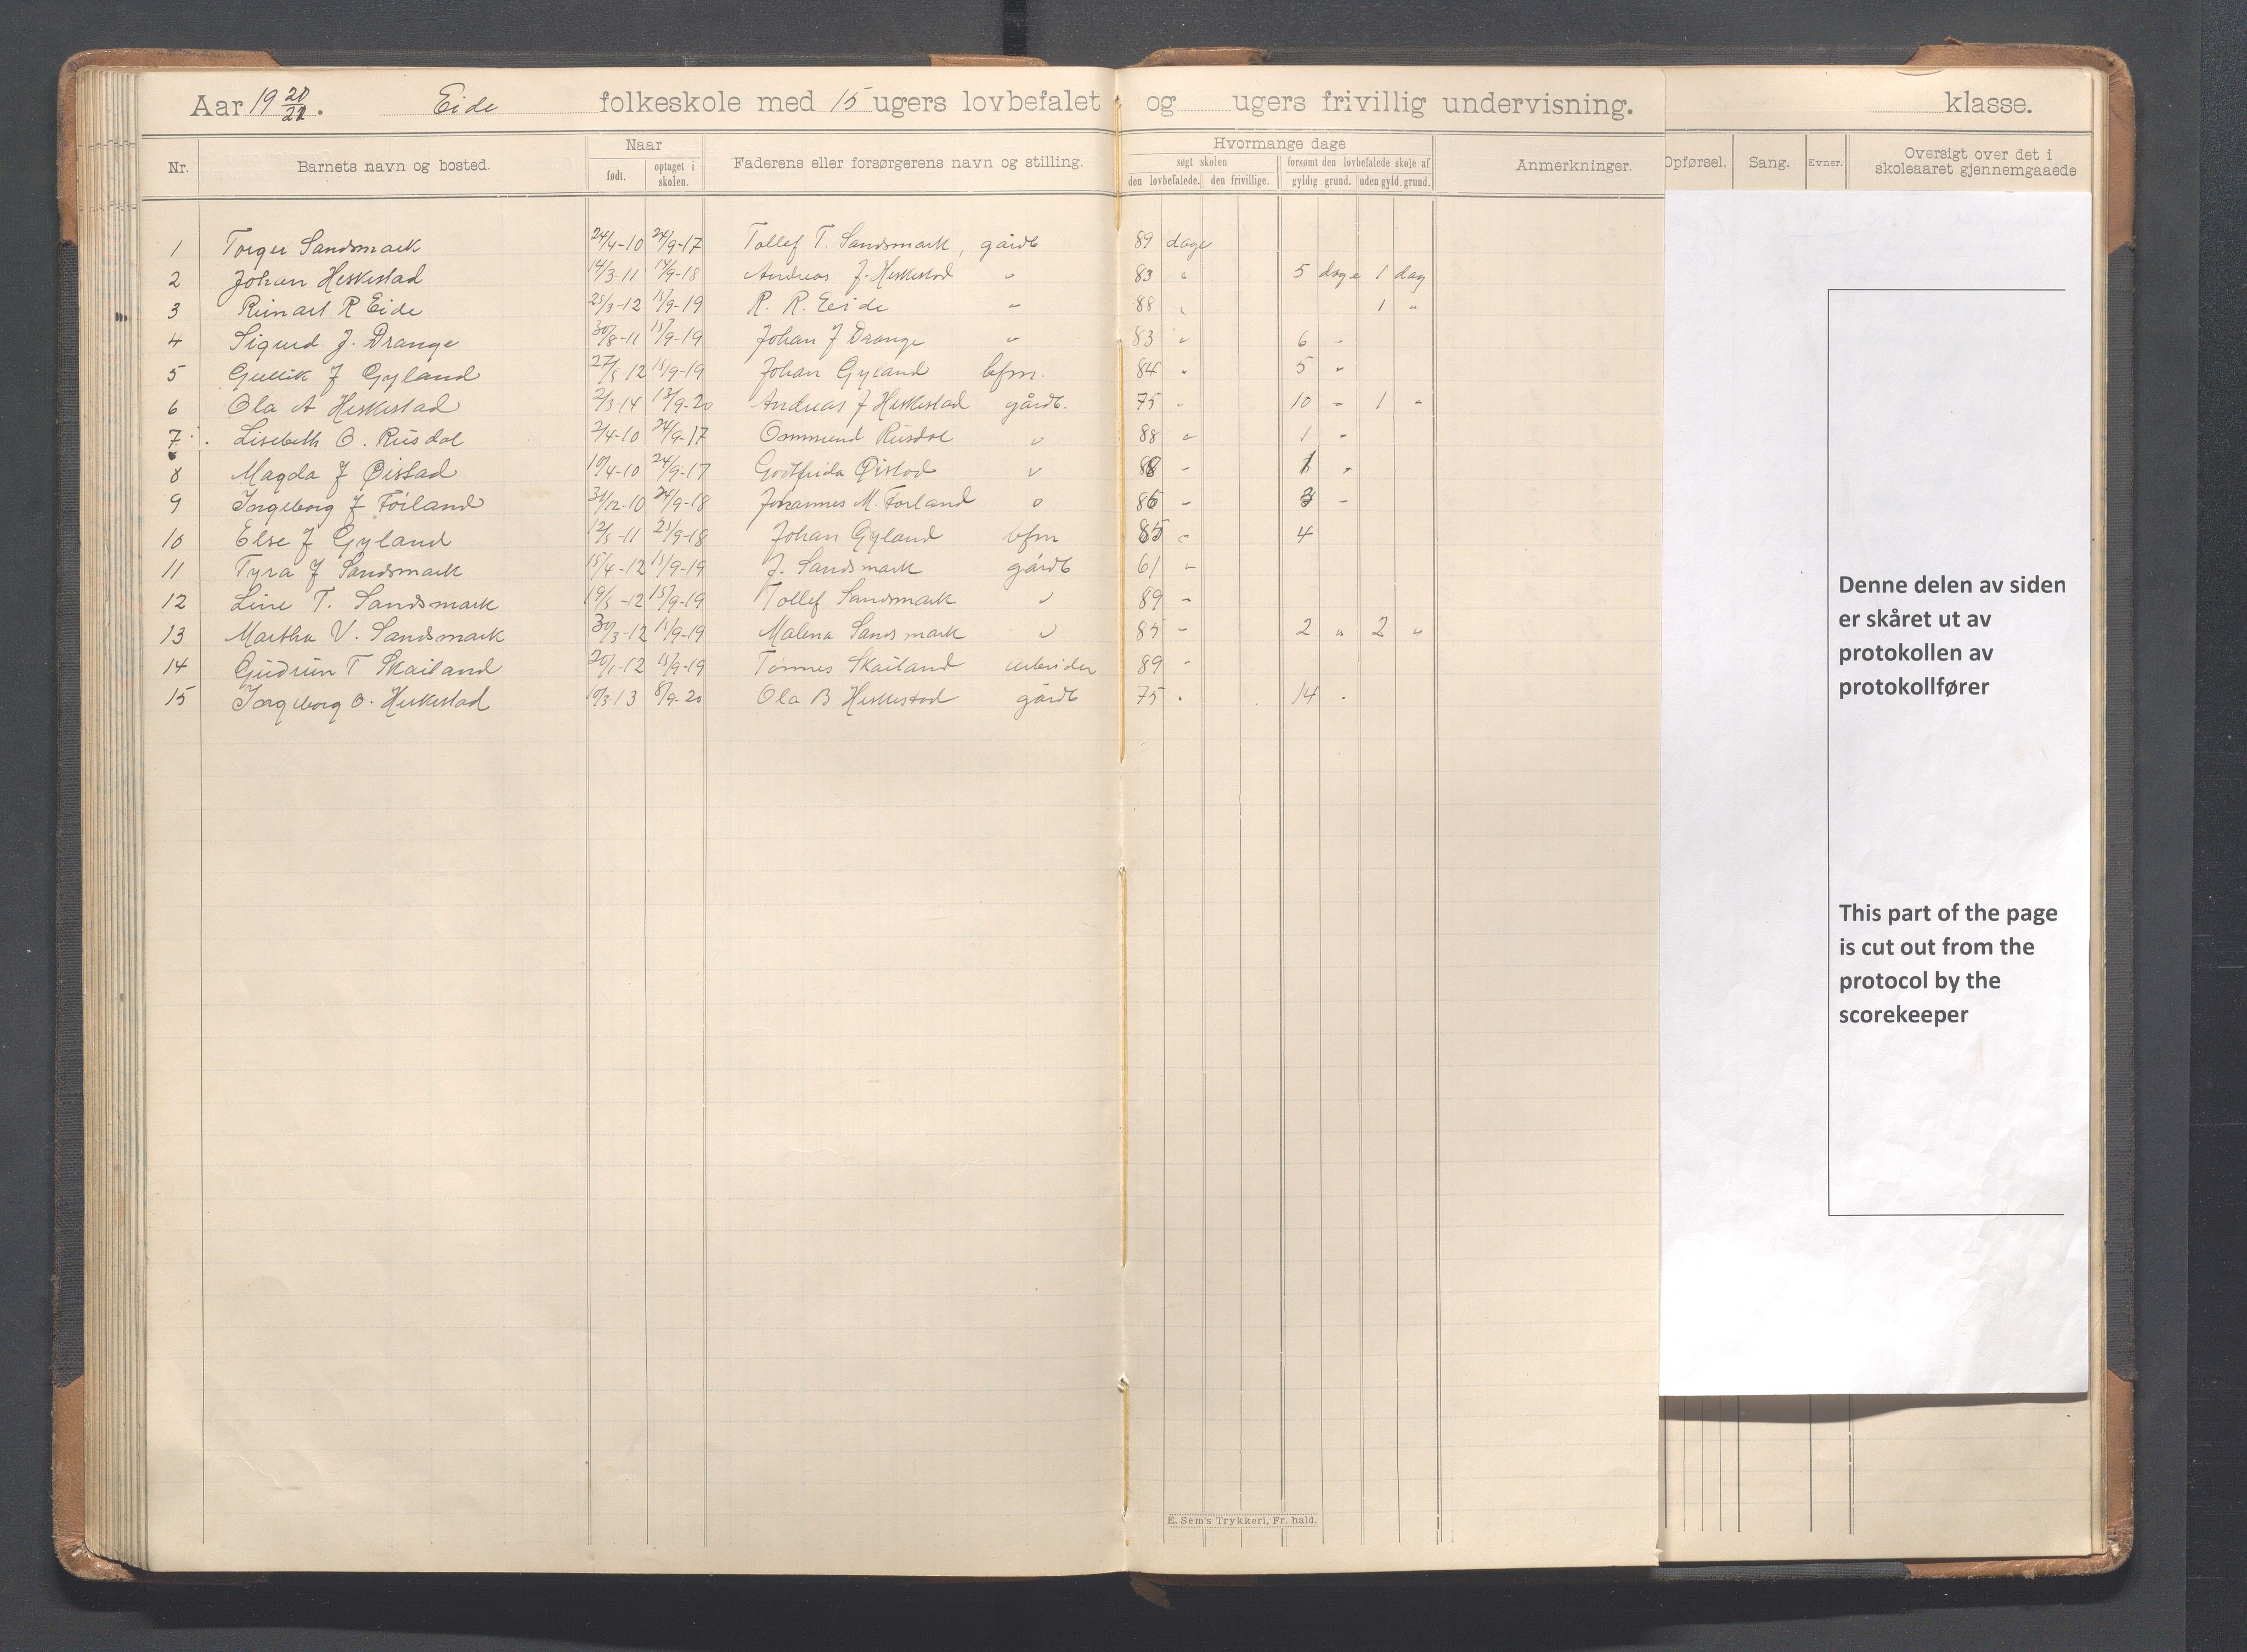 Aar 19 20/21. Eide folkeskole med 15 ugers lovbefalet og ugers frivillig undervisning. klasse.
Nr. Barnets navn og bosted. Naar født. optaget i skolen. Faderens eller forsørgerens navn og stilling. Hvormange dage søgt skolen den lovbefalede. den frivillige. forsømt den lovbefalede skole af gyldig grund. uden gyld. grund. Anmerkninger. Opførsel. Sang. Evner. Oversigt over det i skoleaaret gjennemgaaede
1 Torger Sandsmark 24/4-10 24/9-17 Tollef T. Sandsmark, gårdb 89 dage
2 Johan Heskestad 14/3-11 14/9-18 Andreas J. Heskestad " 83 " 5 dage 1 dag
3 Reinart R Eide 25/3-12 15/9-19 R. R. Eide " 88 " 1 "
4 Sigurd J. Drange 30/8-11 15/9-19 Johan J Drange " 83 " 6 "
5 Gullik J Gyland 27/5 12 15/9-19 Johan Gyland bfm. 84 " 5 "
6 Ola A Heskestad 2/3 14 13/9-20 Andreas J Heskestad gårdb. 75 " 10 " 1 "
7 Lisebeth O. Rusdal 2/4-10 24/9-17 Ommund Rusdal " 88 " 1 "
8 Magda J Øistad 10/4-10 24/9-17 Godtfrida Øistad " 88 " 1 "
9 Ingeborg J Forland 31/12-10 24/9-18 Johannes M. Forland " 86 " 3 "
10 Else J Gyland 12/5-11 21/9-18 Johan Gyland bfm 85 " 4
11 Tyra J Sandsmark 15/4-12 15/9-19 J. Sandsmark gårdb 61 "
12 Line T. Sandsmark 19/5-12 15/9-19 Tollef Sandsmark " 89 "
13 Martha V. Sandsmark 30/3-12 15/9-19 Malena Sandsmark " 85 " 2 " 2 "
14 Gudrun T Skailand 20/1-12 15/9-19 Tønnes Skailand arbeider 89 "
15 Ingeborg O. Heskestad 10/3 13 8/9-20 Ola B Heskestad gårdb 75 " 14 "
Denne delen av siden
er skåret ut av
protokollen av
protokollfører
This part of the page
is cut out from the
protocol by the
scorekeeper
E. Sem's Trykkeri, Fr. hald.